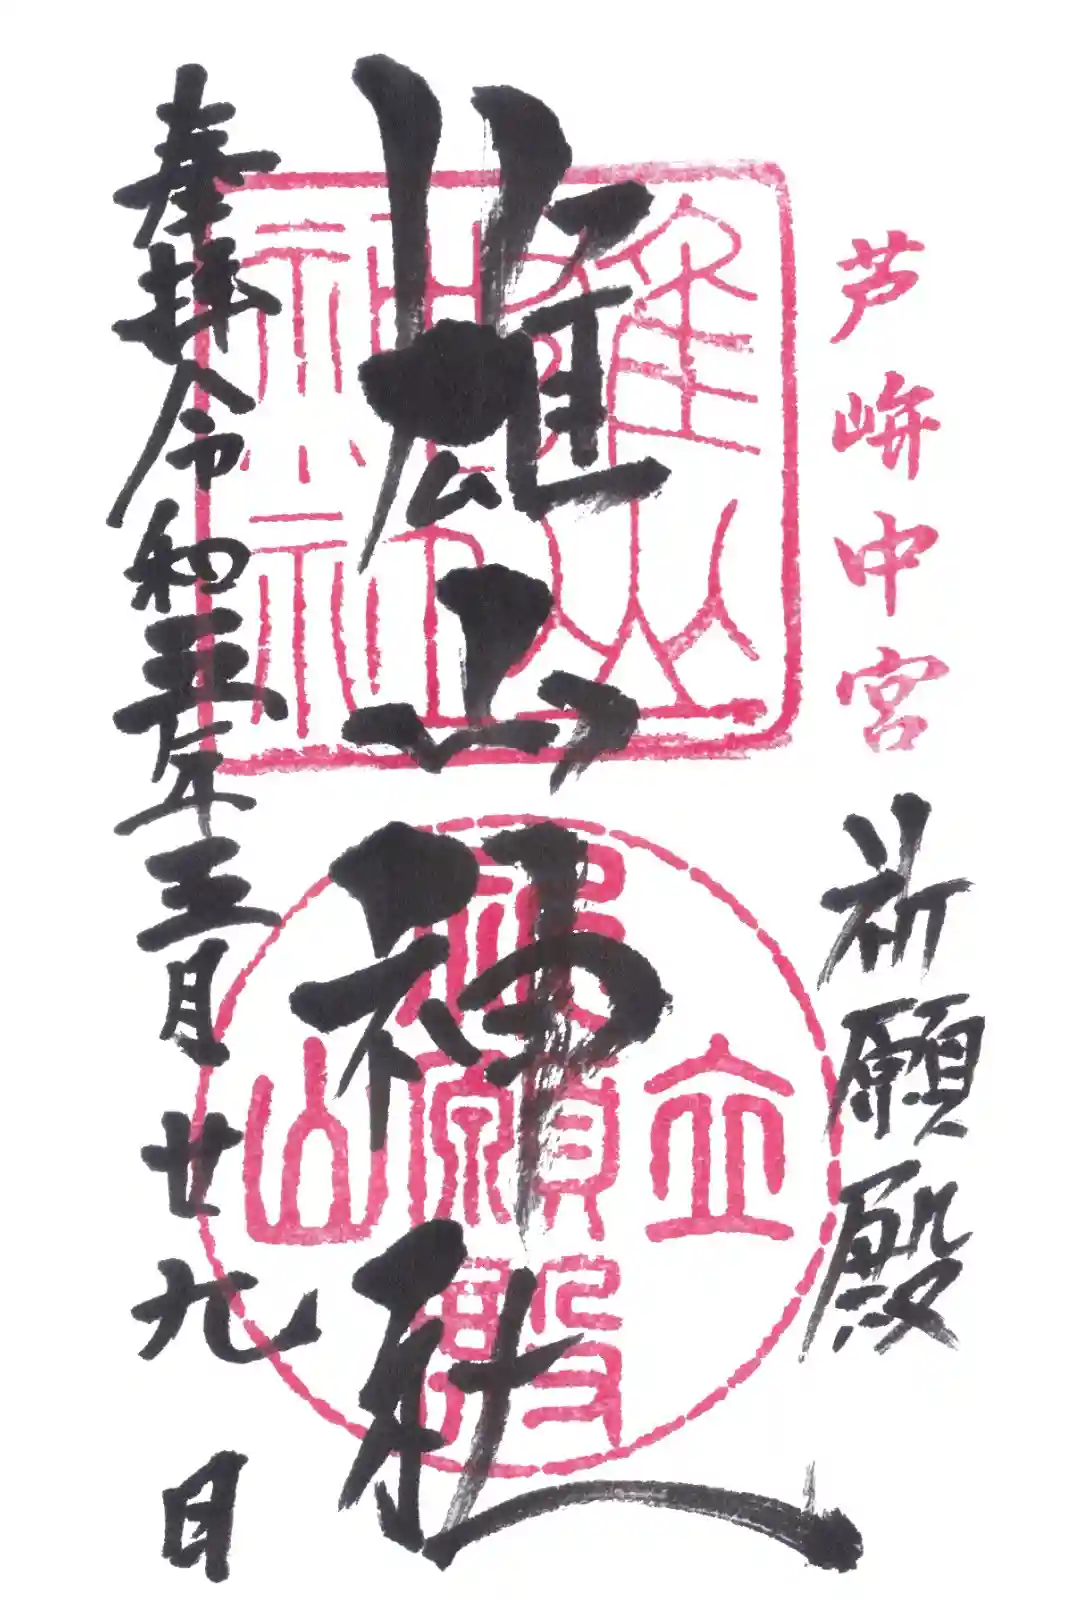 芦峅中宮
祈願殿
雄山神社
雄山神社
神社
立山
祈願殿
奉拝令和五年三月廿九日